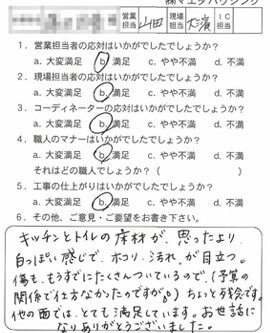 ㈱マエダハウジング
営業担当 山田 現場担当 大濱 IC担当
1. 営業担当者の応対はいかがでしたでしょうか?
a. 大変満足 b. 満足 c. やや不満 d. 不満
2. 現場担当者の応対はいかがでしたでしょうか?
a. 大変満足 b. 満足 c. やや不満 d. 不満
3. コーディネーターの応対はいかがでしたでしょうか?
a. 大変満足 b. 満足 c. やや不満 d. 不満
4. 職人のマナーはいかがでしたでしょうか?
a. 大変満足 b. 満足 c. やや不満 d. 不満
それはどの職人でしょうか?( )
5. 工事の仕上がりはいかがでしたでしょうか?
a. 大変満足 b. 満足 c. やや不満 d. 不満
6. その他、ご意見・ご要望をお書き下さい。
キッチンとトイレの床材が、思ったより
白っぽい感じで、ホコリ、汚れ、が目立つ。
傷も、もうすでにたくさんついているので、(予算の
関係で仕方なかったのですが)ちょっと残念です。
他の面では、とても満足しています。お世話に
なりありがとうございました。